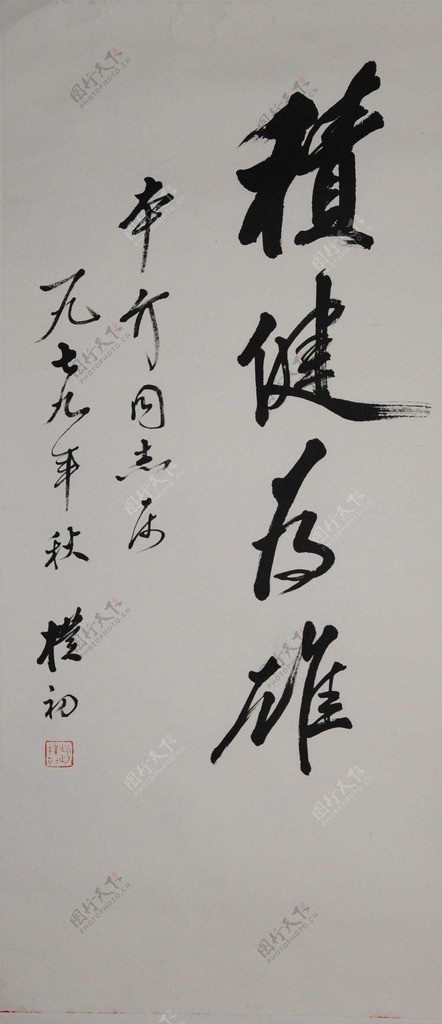 積健为雄
本介同志属
一九七九年秋 樸初
图行天下
PHOTOPHOTO.CN